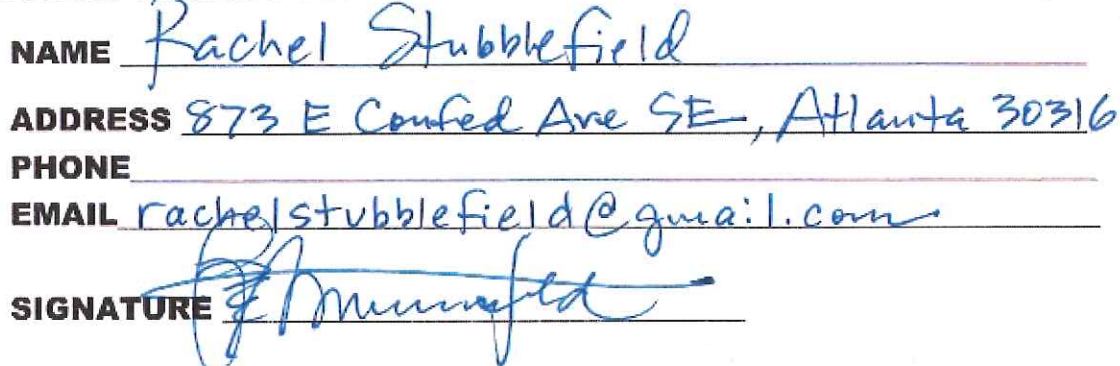 NAME Rachel Stubblefield
ADDRESS 873 E Confed Ave SE, Atlanta 30316
PHONE
EMAIL rachelstubblefield@gmail.com
SIGNATURE